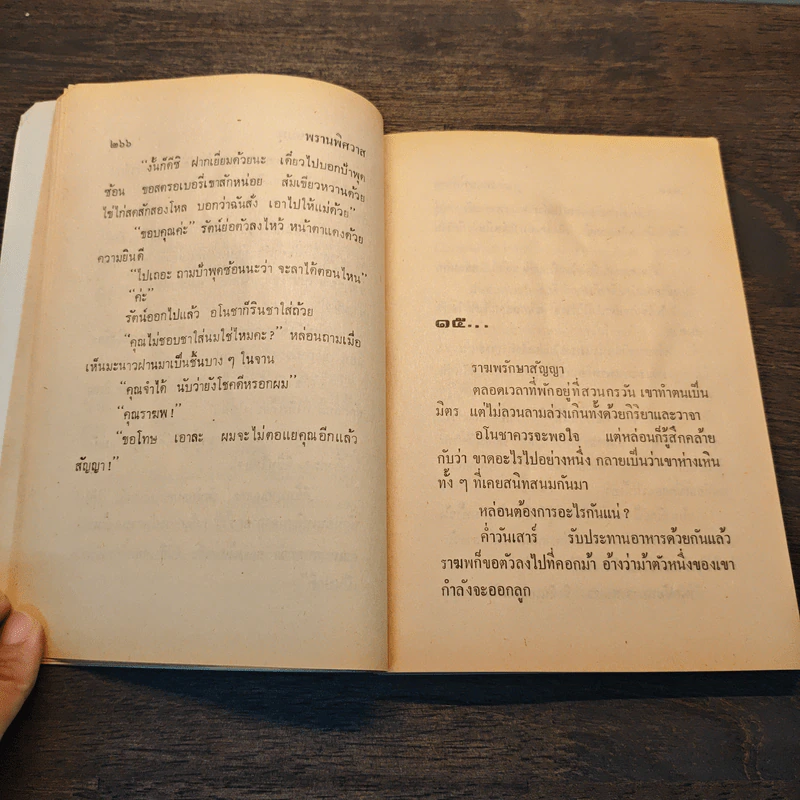 ๒๖๖ พรานพิศวาส
“งั้นก็ดีซิ ฝากเยี่ยมด้วยนะ เดี๋ยวไปบอกป้าพุด
ซ้อน ขอสตรอเบอรี่เขาสักหน่อย ส้มเขียวหวานด้วย
ไข่ไก่สดสักสองโหล บอกว่าฉันสั่ง เอาไปให้แม่ด้วย”
“ขอบคุณค่ะ” รัตน์ย่อตัวลงไหว้ หน้าตาแดงด้วย
ความยินดี
“ไปเถอะ ถามป้าพุดซ้อนนะว่า จะลาได้ตอนไหน”
“ค่ะ”
รัตน์ออกไปแล้ว อโนชาก็รินชาใส่ถ้วย
“คุณไม่ชอบชาใส่นมใช่ไหมคะ?” หล่อนถามเมื่อ
เห็นมะนาวฝานมาเป็นชิ้นบาง ๆ ในจาน
“คุณจำได้ นับว่ายังโชคดีหรอกผม”
“คุณราฆพ!”
“ขอโทษ เอาละ ผมจะไม่ตอแยคุณอีกแล้ว
สัญญา!”
๑๕...
ราฆพรักษาสัญญา
ตลอดเวลาที่พักอยู่ที่สวนกรวัน เขาทำตนเป็น
มิตร แต่ไม่ลวนลามล่วงเกินทั้งด้วยกิริยาและวาจา
อโนชาควรจะพอใจ แต่หล่อนก็รู้สึกคล้าย
กับว่า ขาดอะไรไปอย่างหนึ่ง กลายเป็นว่าเขาห่างเหิน
ทั้ง ๆ ที่เคยสนิทสนมกันมา
หล่อนต้องการอะไรกันแน่?
ค่ำวันเสาร์ รับประทานอาหารด้วยกันแล้ว
ราฆพก็ขอตัวลงไปที่คอกม้า อ้างว่าม้าตัวหนึ่งของเขา
กำลังจะออกลูก